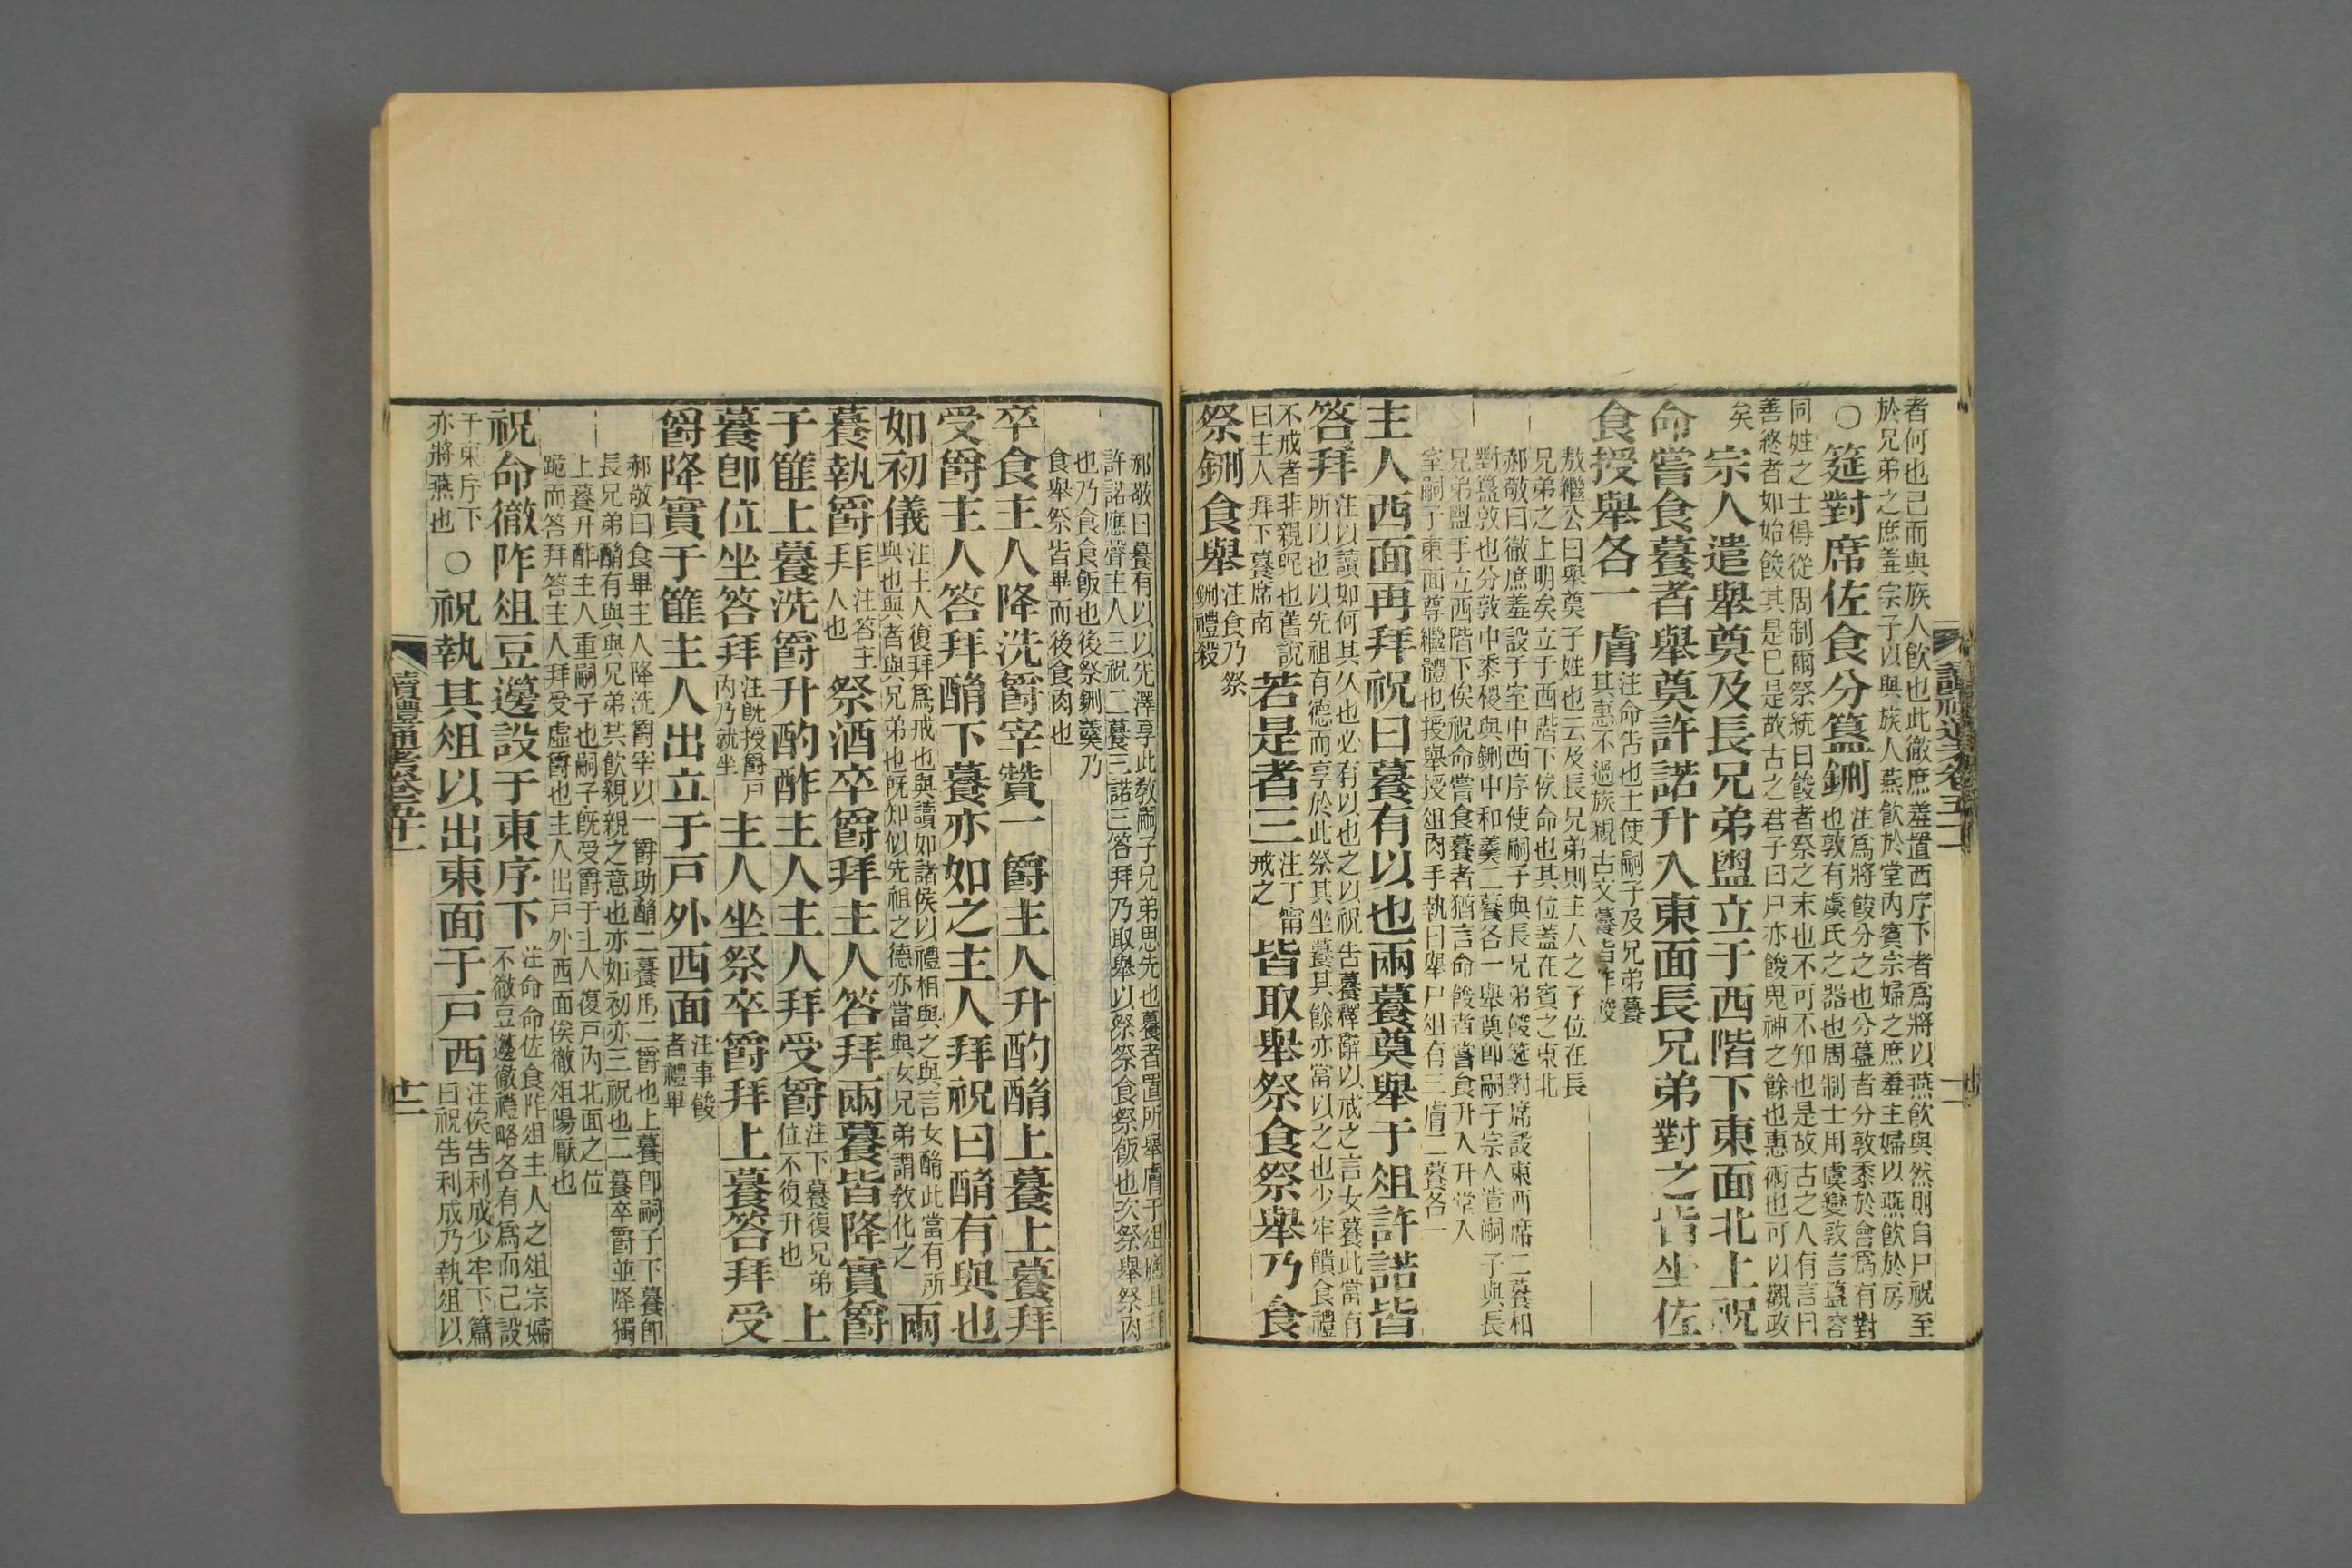 者何也已而與族人飲也此徹庶羞置西序下者爲將以燕飲與然則自尸祝至
於兄弟之庶羞宗子以與族人燕飲於堂內賓宗婦之庶羞主婦以燕飲於房
○筵對席佐食分簋鉶注爲將餕分之也分簋者分敦黍於會爲有對
也敦有虞氏之器也周制士用虞變敦言簋容
同姓之士得從周制爾祭統曰餕者祭之末也不可不知也是故古之人有言曰
善終者如始餕其是已是故古之君子曰尸亦餕鬼神之餘也惠術也可以觀政
矣
宗人遣舉奠及長兄弟盥立于西階下東面北上祝
命嘗食䭒者舉奠許諾升入東面長兄弟對之皆坐佐
食授舉各一膚注命告也士使嗣子及兄弟䭒
其惠不過族親古文䭒皆作餕
敖繼公曰舉奠子姓也云及長兄弟則主人之子位在長
兄弟之上明矣立于西階下俟命也其位蓋在賓之東北
郝敬曰徹庶羞設于室中西序使嗣子與長兄弟餕筵對席設東西席二䭒相
對簋敦也分敦中黍稷與鉶中和羹二䭒各一舉奠卽嗣子宗人遣嗣子與長
兄弟盥手立西階下俟祝命嘗食䭒者猶言命餕者嘗食升入升堂入
室嗣子東面尊繼體也授舉授俎肉手執曰舉尸俎有三膚二䭒各一
主人西面再拜祝曰䭒有以也兩䭒奠舉于俎許諾皆
答拜注以讀如何其久也必有以也之以祝告䭒釋辭以戒之言女䭒此當有
所以也以先祖有德而享於此祭其坐䭒其餘亦當以之也少牢饋食禮
不戒者非親昵也舊說
曰主人拜下䭒席南
若是者三注丁甯
戒之
皆取舉祭食祭舉乃食
祭鉶食舉注食乃祭
鉶禮殺
讀禮通考卷五十二
十二
郝敬曰䭒有以以先澤享此教嗣子兄弟思先也䭒者置所舉膚于俎應且拜
許諾應聲主人三祝二䭒三諾三答拜乃取舉以祭祭食祭飯也次祭舉祭肉
也乃食食飯也後祭鉶羹乃
食舉祭皆畢而後食肉也
卒食主人降洗爵宰贊一爵主人升酌酳上䭒上䭒拜
受爵主人答拜酳下䭒亦如之主人拜祝曰酳有與也
如初儀注主人復拜爲戒也與讀如諸侯以禮相與之與言女酳此當有所
與也與者與兄弟也旣知似先祖之德亦當與女兄弟謂教化之
兩
䭒執爵拜注答主
人也
祭酒卒爵拜主人答拜兩䭒皆降實爵
于篚上䭒洗爵升酌酢主人主人拜受爵注下䭒復兄弟
位不復升也
上
䭒卽位坐答拜注旣授爵戶
內乃就坐
主人坐祭卒爵拜上䭒答拜受
爵降實于篚主人出立于戶外西面注事餕
者禮畢
郝敬曰食畢主人降洗爵宰以一爵助酳二䭒用二爵也上䭒卽嗣子下䭒卽
長兄弟酳有與與兄弟共飲親親之意也亦如初亦三祝也二䭒卒爵並降獨
上䭒升酢主人重嗣子也嗣子旣受爵于主人復戶內北面之位
跪而答拜答主人拜受虛爵也主人出戶外西面俟徹俎陽厭也
祝命徹阼俎豆籩設于東序下注命命佐食阼俎主人之俎宗婦
不徹豆籩徹禮略各有爲而已設
于東序下
亦將燕也
○祝執其俎以出東面于戶西注俟告利成少牢下篇
曰祝告利成乃執俎以
讀禮通考卷五十二
十二